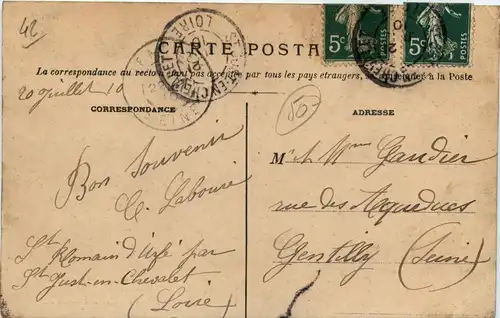 42
CARTE POSTA
La correspondance au recto n'étant pas acceptée par tous les pays étrangers, se renseigner à la Poste
20 Juillet 10
CORRESPONDANCE
ADRESSE
50
5c
5c
LOIRE
Bon Souvenir
C. Laboure
St Romain d'Urfé par
St Just-en-Chevalet
(Loire)
M. & Mme Gaudier
rue des Aqueducs
Gentilly (Seine)